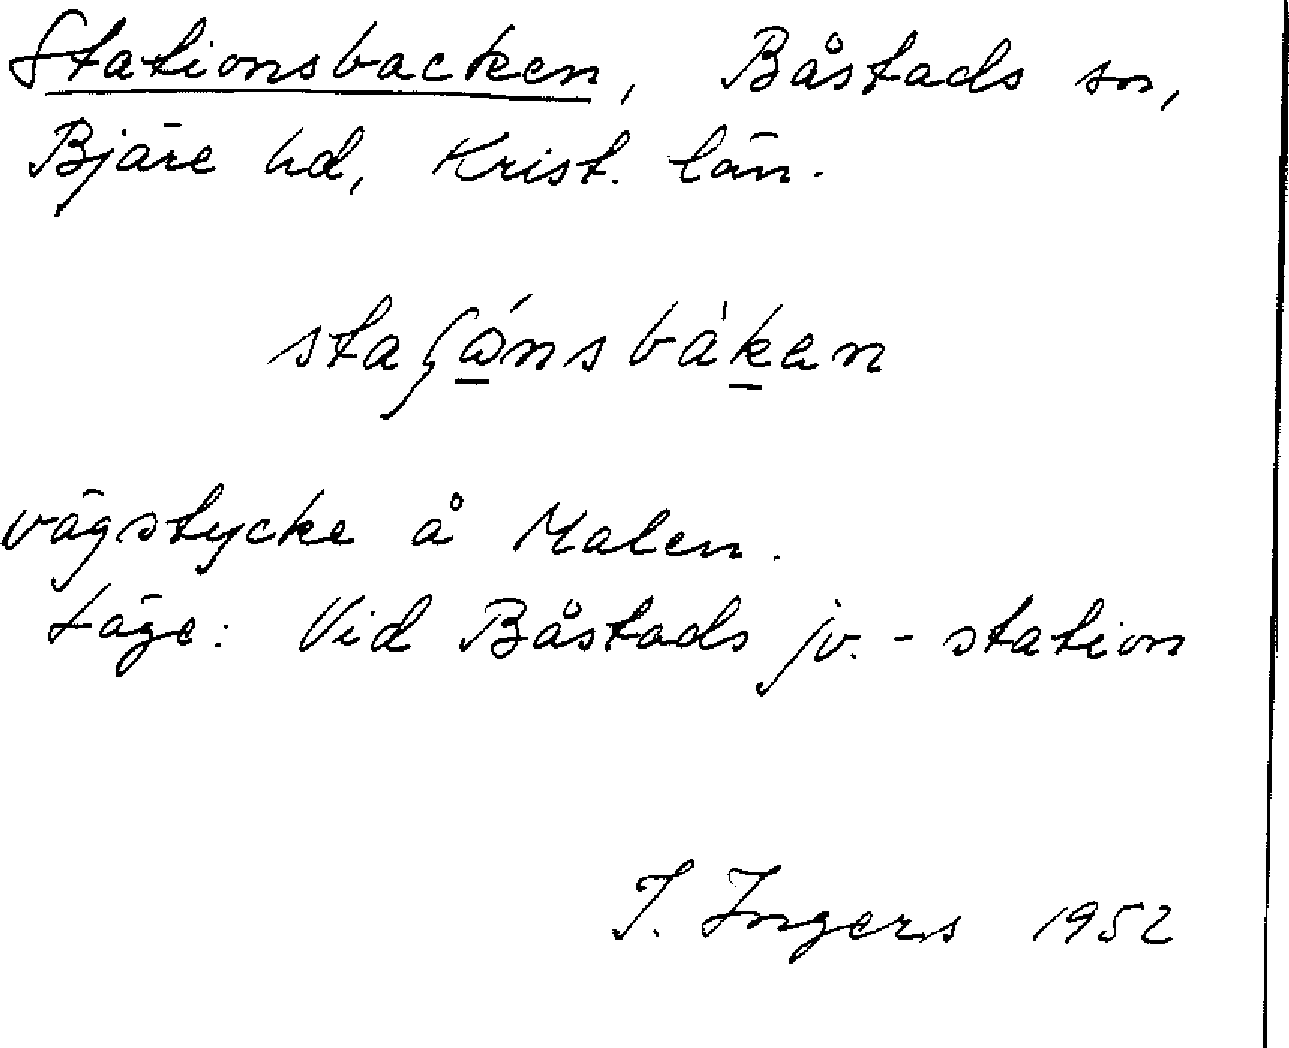 Stationsbacken, Båstads sn,
Bjäre hd, Krist. län.
staʃώnsbàkan
vägstycke å Malen.
Läge: Vid Båstads jv.-station
I. Ingers 1952